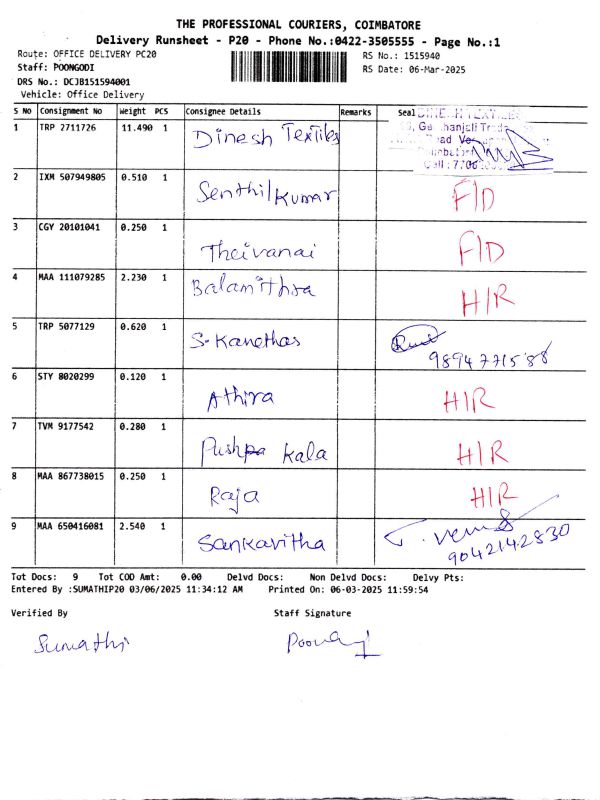 THE PROFESSIONAL COURIERS, COIMBATORE
Delivery Runsheet - P20 - Phone No.:0422-3505555 - Page No.:1
Route: OFFICE DELIVERY PC20
RS No.: 1515940
Staff: POONGODI
RS Date: 06-Mar-2025
DRS No.: DCJB151594001
Vehicle: Office Delivery
S No Consignment No Weight PCS Consignee Details Remarks Seal
1 TRP 2711726 11.490 1 Dinesh Textiles
DINESH TEXTILES
2 IXM 507949805 0.510 1 Senthil Kumar F/D
3 CGY 20101041 0.250 1 Theivanai F/D
4 MAA 111079285 2.230 1 Balamithra H/R
5 TRP 5077129 0.620 1 S. Kanethas
9894771588
6 STY 8020299 0.120 1 Athira H/R
7 TVM 9177542 0.280 1 Pushpa Kala H/R
8 MAA 867738015 0.250 1 Raja H/R
9 MAA 650416081 2.540 1 Sankavitha
9042142830
Tot Docs: 9 Tot COD Amt: 0.00 Delvd Docs: Non Delvd Docs: Delvy Pts:
Entered By :SUMATHIP20 03/06/2025 11:34:12 AM Printed On: 06-03-2025 11:59:54
Verified By Staff Signature
Sumathi